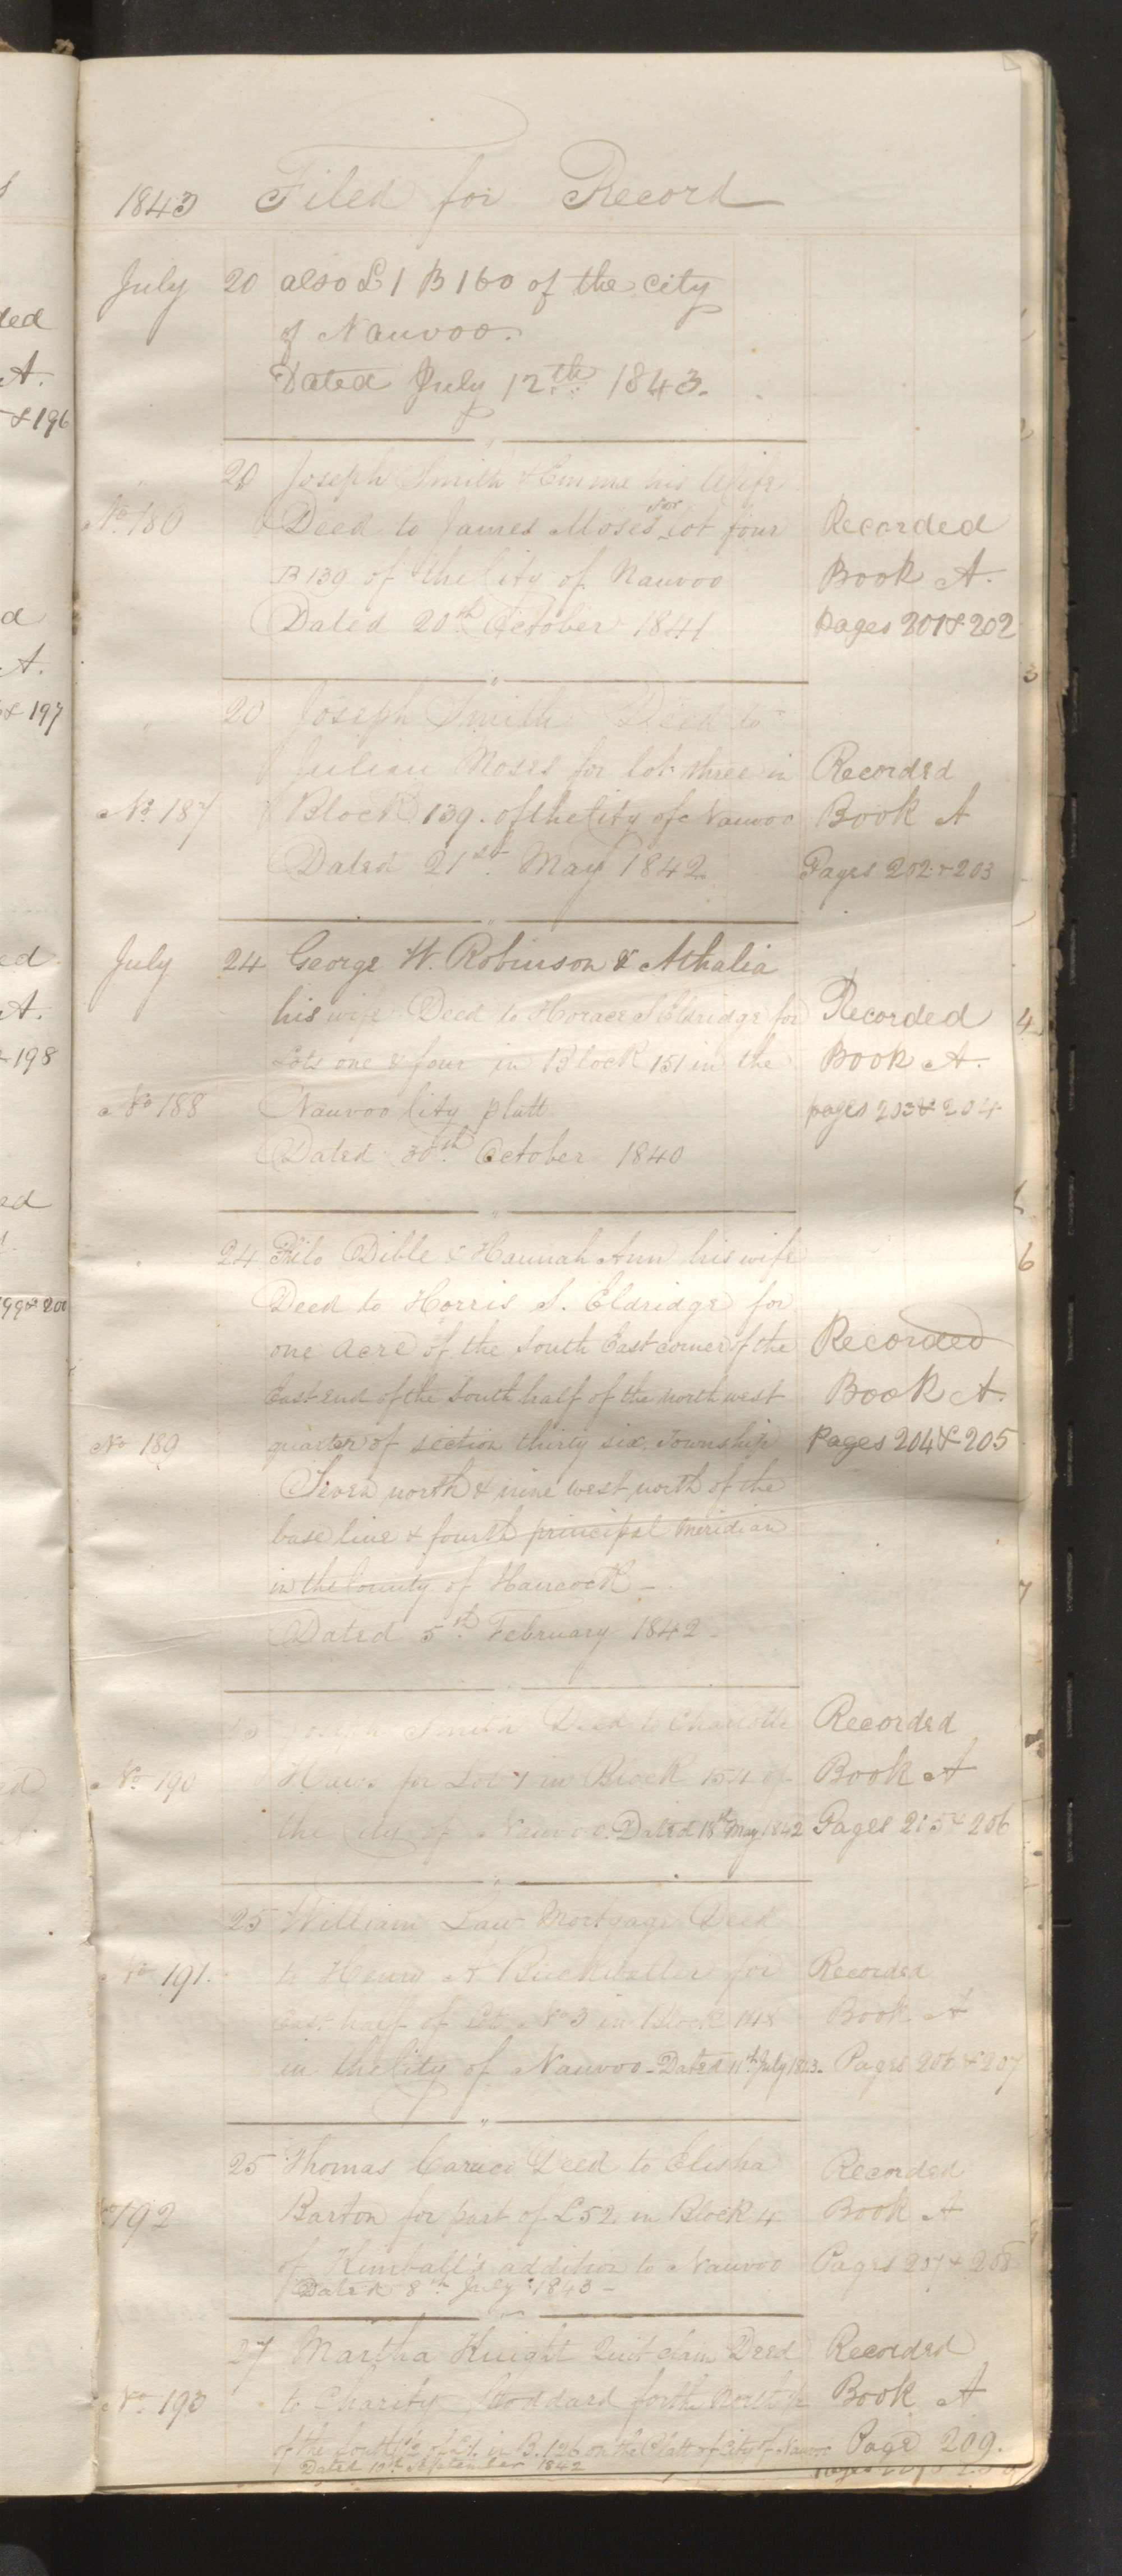 1843 Filed for Record
July 20 also L 1 B 160 of the city
of Nauvoo.
Dated July 12th 1843.
20 Joseph Smith & Emma his Wife
No 186 Deed to James Moses for lot four Recorded
B 139 of the City of Nauvoo Book A.
Dated 20th October 1841 pages 201 & 202
20 Joseph Smith Deed to
Julian Moses for lot three in Recorded
No 187 Block 139. of the City of Nauvoo Book A
Dated 21st May 1842 Pages 202 & 203
July 24 George W. Robinson & Athalia
his wife Deed to Horace S Eldridge for Recorded
Lots one & four in Block 151 in the Book A.
No 188 Nauvoo City platt pages 203 & 204
Dated 30th October 1840
24 Philo Dible & Hannah Ann his wife
Deed to Horris S. Eldridge for
one acre of the South East corner of the Recorded
East end of the South half of the north west Book A.
No 189 quarter of section thirty six. Township Pages 204 & 205
Seven north & nine west north of the
base line & fourth principal meridian
in the County of Hancock
Dated 5th February 1842.
Joseph Smith Deed to Charlotte Recorded
No 190 Haws for Lot 1 in Block 154 of Book A
the City of Nauvoo. Dated 18th May 1842 Pages 205 & 206
25 William Law Mortgage Deed
No 191. to Henry for Recorded
East half of Lot No 3 in Block 148 Book A
in the City of Nauvoo - Dated 11th July 1843 - Pages 206 & 207
25 Thomas Carrico Deed to Elisha Recorded
192 Barton for part of L 52 in Block 4 Book A
of Kimball's addition to Nauvoo Pages 207 & 208
Dated 8th July 1843 -
27 Martha Knight Quit claim Deed Recorded
No 193 to Charity Stoddard for the North 1/2 Book A
of the South 1/2 of L 1. in B. 126 on the Platt of City of Nauvoo Page 209.
Dated 10th September 1842